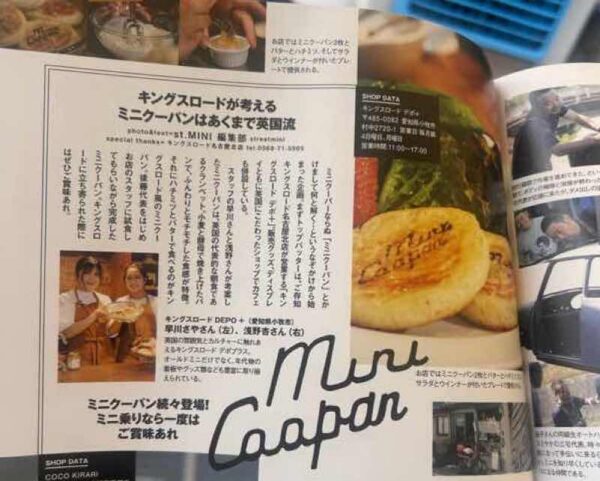 お店ではミニクーパン2枚と
バターとハチミツ、そしてサラ
ダとウインナーが付いたプレー
トで提供される。
キングスロードが考える
ミニクーパンはあくまで英国流
photo&text=st.MINI 編集部 streetmini
special thanks= キングスロード名古屋北店 tel:0568-71-0999
SHOP DATA
キングスロード デポ+
〒485-0082 愛知県小牧市
村中2720-1 営業日 毎月第
4日曜日、月曜日
営業時間 11:00〜17:00
ミニクーパーならぬ「ミニクーパン」とか
けまして何と解く…というなぞかけから始
まった企画。まずトップバッターは、ご存知
キングスロード名古屋北店が営業する「キン
グスロード デポ+」。販売グッズ、ディスプレ
イともに英国にこだわったショップでカフェ
も併設している。
スタッフの早川さんと浅野さんが考案し
たミニクーパンは、英国の代表的な朝食であ
るクランペット。小麦と酵母で焼き上げたパ
ンで、ふんわりとモチモチした食感が特徴。
それにハチミツとバターで食べるのがキン
グスロード風のミニクー
パン。後藤代表をはじめ
お店のスタッフに試食し
てもらいながら完成した
ミニクーパン。キングスロ
ードに立ち寄られた際に
はぜひご賞味あれ。
Mini
Coopan
キングスロード DEPO + (愛知県小牧市)
早川さやさん(左)、浅野杏さん(右)
英国の雰囲気とカルチャーに触れあ
えるキングスロード デポプラス。
オールドミニだけでなく、年代物の
看板やグッズ類なども豊富に取り揃
えられている。
Mini
Coopan
ミニクーパン続々登場!
ミニ乗りなら一度は
ご賞味あれ
お店ではミニクーパン2枚とバターとハチミツ、そして
サラダとウインナーが付いたプレートで提供
SHOP DATA
COCO KIRARI